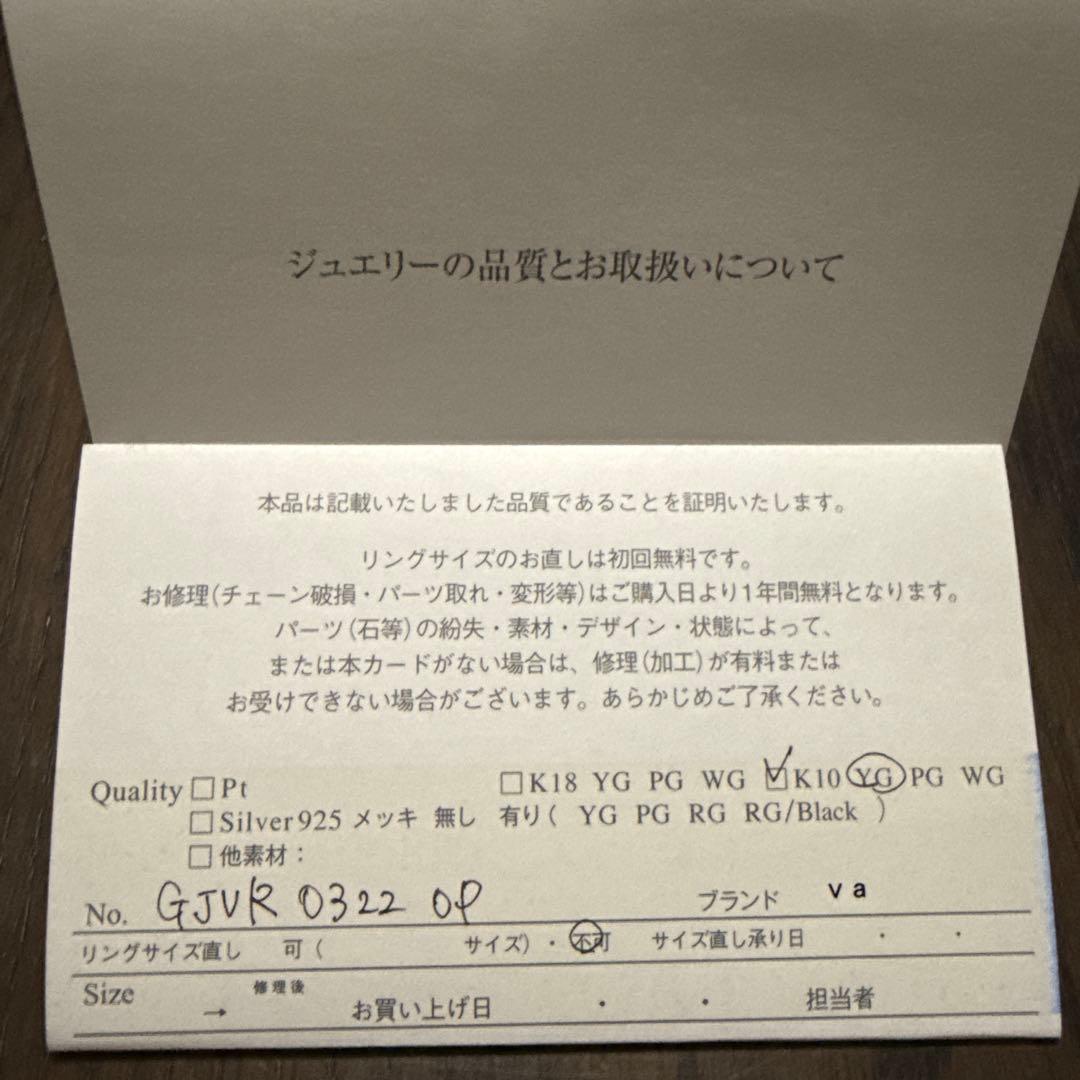 ジュエリーの品質とお取扱いについて
本品は記載いたしました品質であることを証明いたします。
リングサイズのお直しは初回無料です。
お修理(チェーン破損・パーツ取れ・変形等)はご購入日より1年間無料となります。
パーツ(石等)の紛失・素材・デザイン・状態によって、
または本カードがない場合は、修理(加工)が有料または
お受けできない場合がございます。あらかじめご了承ください。
Quality □Pt □K18 YG PG WG ☑K10 YG PG WG
□Silver925 メッキ 無し 有り( YG PG RG RG/Black )
□他素材：
No. GJVR 0322 OP ブランド va
リングサイズ直し 可( サイズ)・不可 サイズ直し承り日 ・ ・
Size → 修理後 お買い上げ日 ・ ・ 担当者